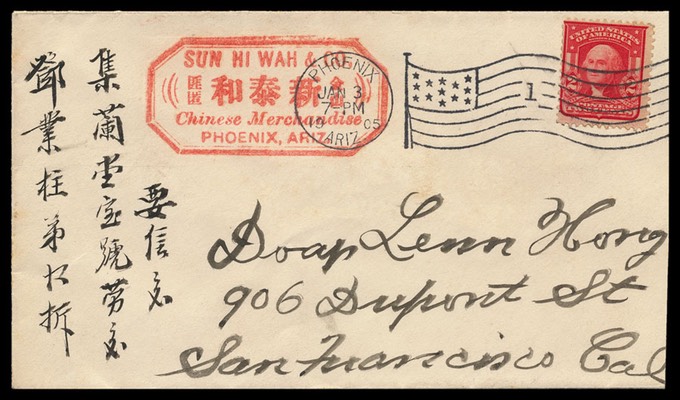 SUN HI WAH & CO
和泰新
Chinese Merchandise
PHOENIX, ARIZ
PHOENIX
JAN 3
7-PM
1905
ARIZ.
1
UNITED STATES
OF AMERICA
2 2
要信交
集蘭堂宝號勞交
鄧業柱弟收拆
Doap Lenn Hong
906 Dupont St
San Francisco Cal